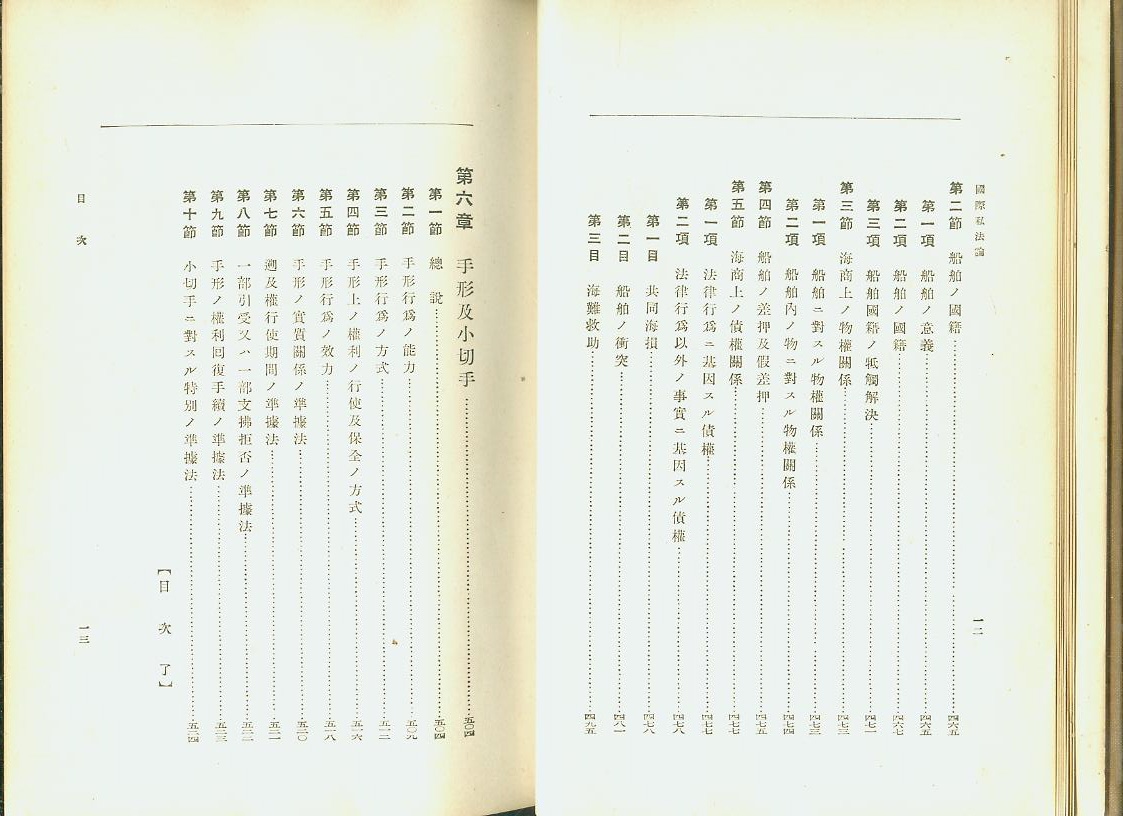 國際私法論
一二
第二節 船舶ノ國籍 四六五
第一項 船舶ノ意義 四六五
第二項 船舶ノ國籍 四六七
第三項 船舶國籍ノ牴觸解決 四七一
第三節 海商上ノ物權關係 四七三
第一項 船舶ニ對スル物權關係 四七三
第二項 船舶內ノ物ニ對スル物權關係 四七四
第四節 船舶ノ差押及假差押 四七五
第五節 海商上ノ債權關係 四七七
第一項 法律行爲ニ基因スル債權 四七七
第二項 法律行爲以外ノ事實ニ基因スル債權 四七八
第一目 共同海損 四七八
第二目 船舶ノ衝突 四八一
第三目 海難救助 四九五
第六章 手形及小切手 五〇四
第一節 總說 五〇四
第二節 手形行爲ノ能力 五〇九
第三節 手形行爲ノ方式 五一二
第四節 手形上ノ權利ノ行使及保全ノ方式 五一六
第五節 手形行爲ノ效力 五一八
第六節 手形ノ實質關係ノ準據法 五二〇
第七節 遡及權行使期間ノ準據法 五二一
第八節 一部引受又ハ一部支拂拒否ノ準據法 五二二
第九節 手形ノ權利回復手續ノ準據法 五二三
第十節 小切手ニ對スル特別ノ準據法 五二四
【目次了】
目次
一三